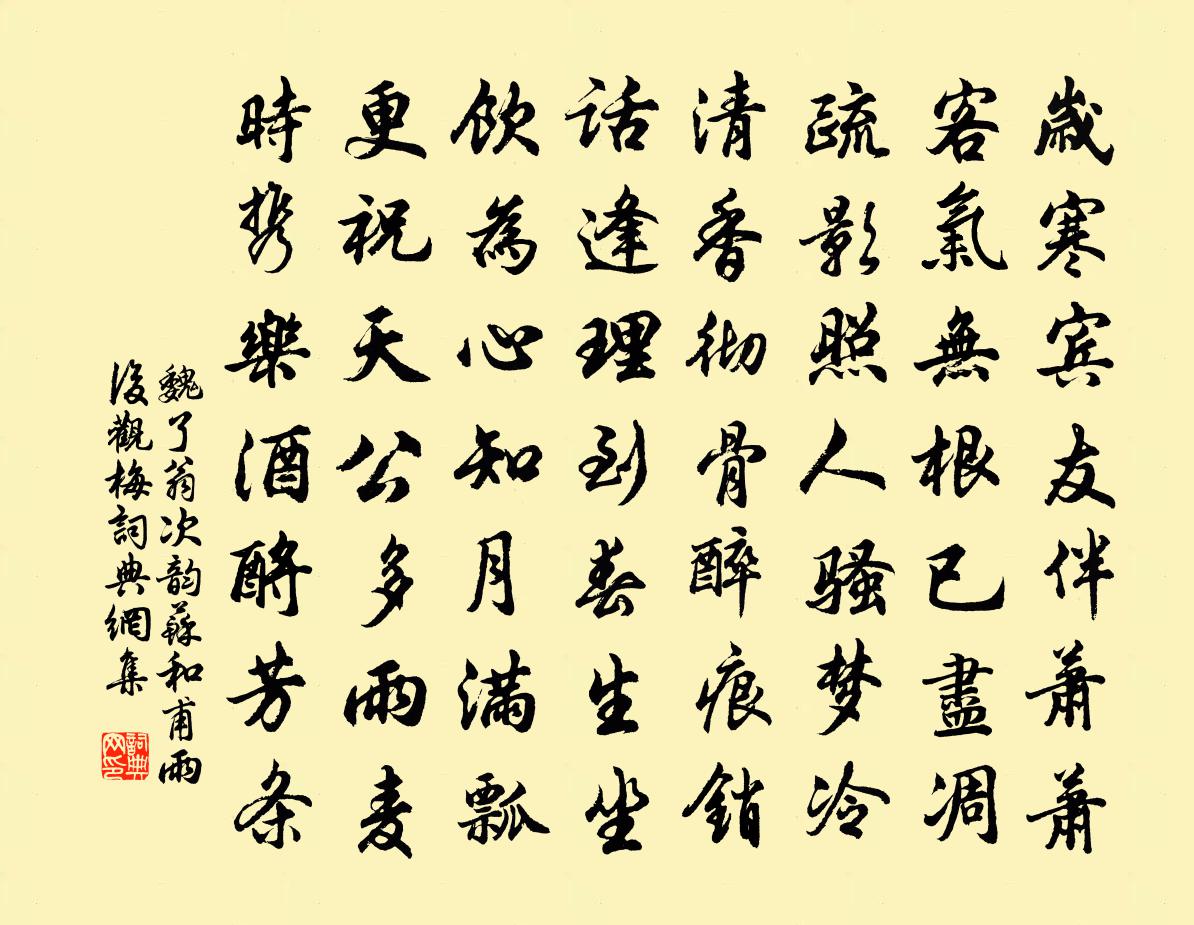 歲寒賓友伴蕭蕭
客氣無根已盡凋
疏影照人騷梦冷
清香彻骨醉痕銷
話逢理到春生坐
飲為心知月满瓢
更祝天公多雨麦
時携樂酒酹芳条
魏了翁次韵蘇和甫雨
後觀梅詞典網集
詞典网印